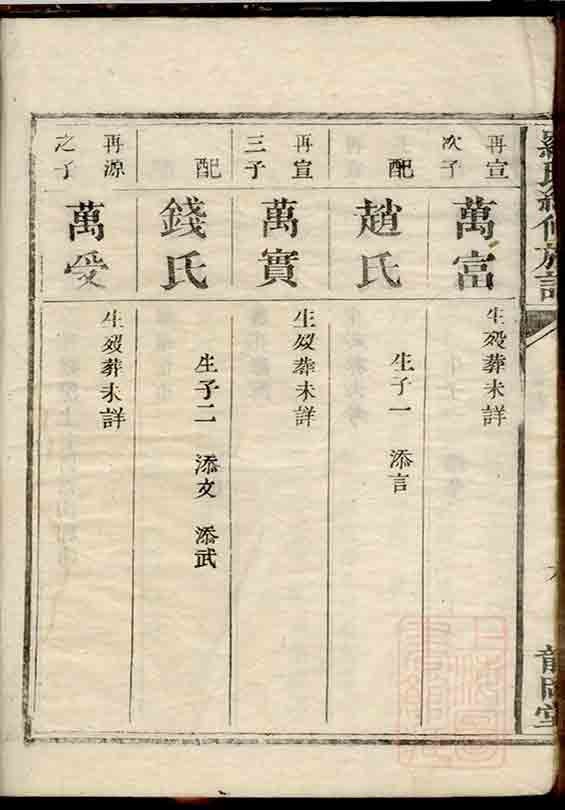 再宣
次子
萬富
生歿葬未詳
配
趙氏
生子一 添言
再宣
三子
萬實
生歿葬未詳
配
錢氏
生子二 添文 添武
再源
之子
萬受
生歿葬未詳